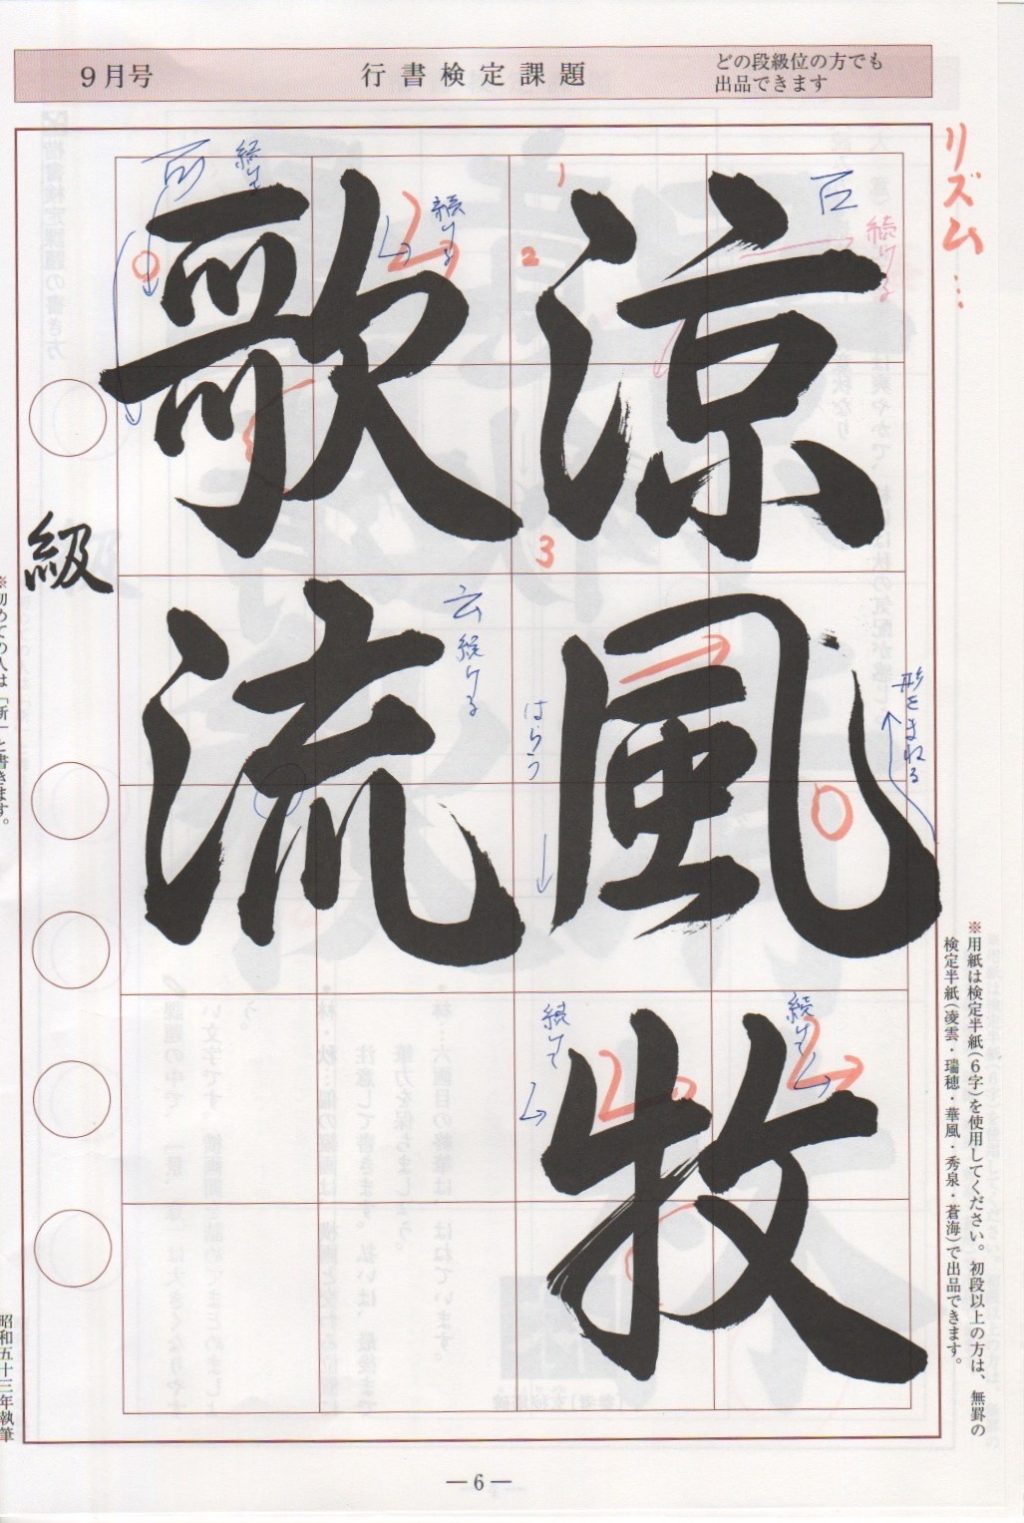 9月号
行書検定課題
どの段級位の方でも
出品できます
リズム…
涼風牧
歌流
級
続ける
続ける
続ける
形をまねる
はらう
1
2
3
※用紙は検定半紙(6字)を使用してください。初段以上の方は、無罫の
検定半紙(凌雲・瑞穂・華風・秀泉・蒼海)で出品できます。
※初めての人は「新」と書きます。
昭和五十三年執筆
— 6 —